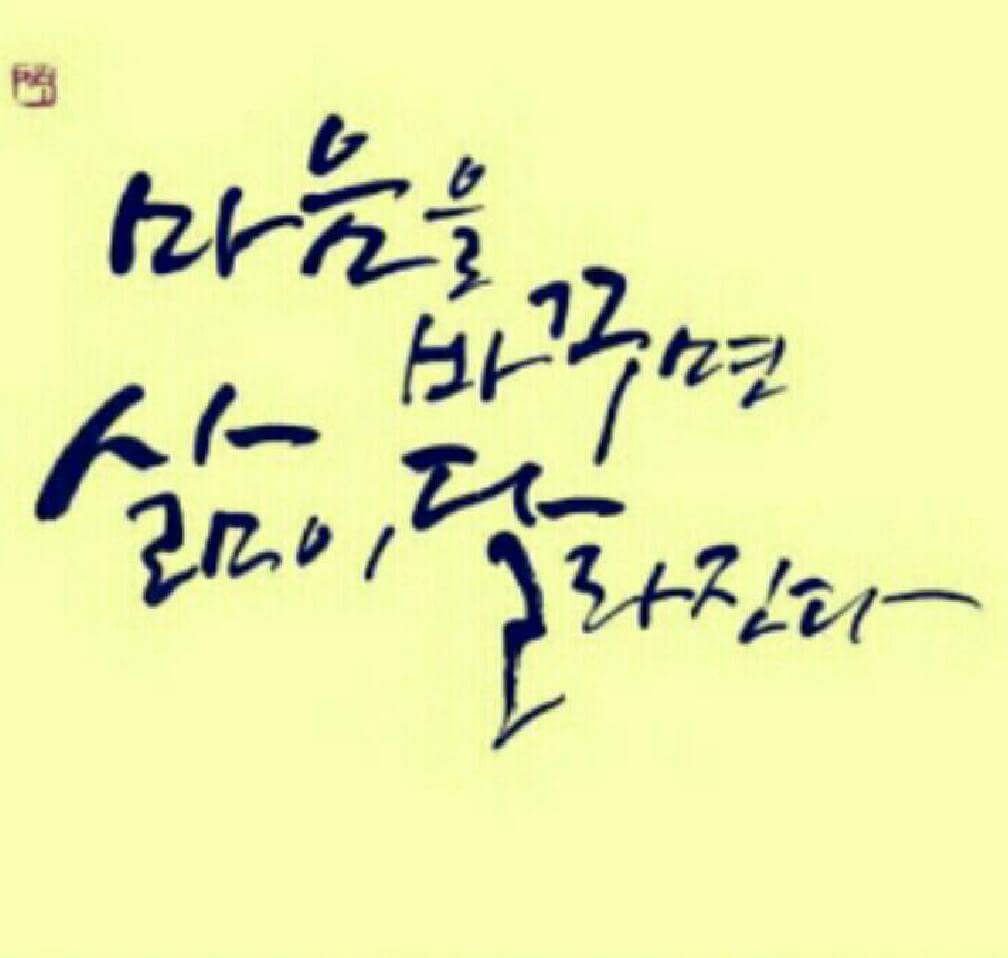 마음을
바꾸면
삶이 달라진다